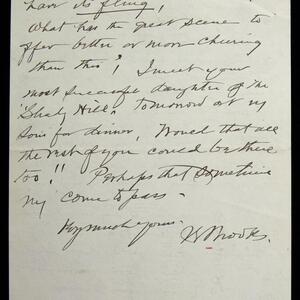 have its fling,
What has the great scene to
offer better or more cheering
than this! I meet your
most successful daughter of the
"Shady Hill" tomorrow at my
sons for dinner, Would that all
the rest of you could be there
too!! Perhaps that Sometime
my come to pass -
Very much yours.
Brooks.